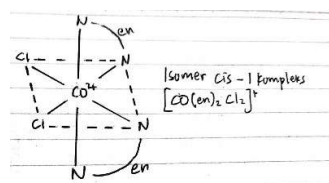 N
en
Cl
N
Co²⁺
Cl
N
N
en
Isomer cis - 1 kompleks
[CO(en)₂ Cl₂]⁺